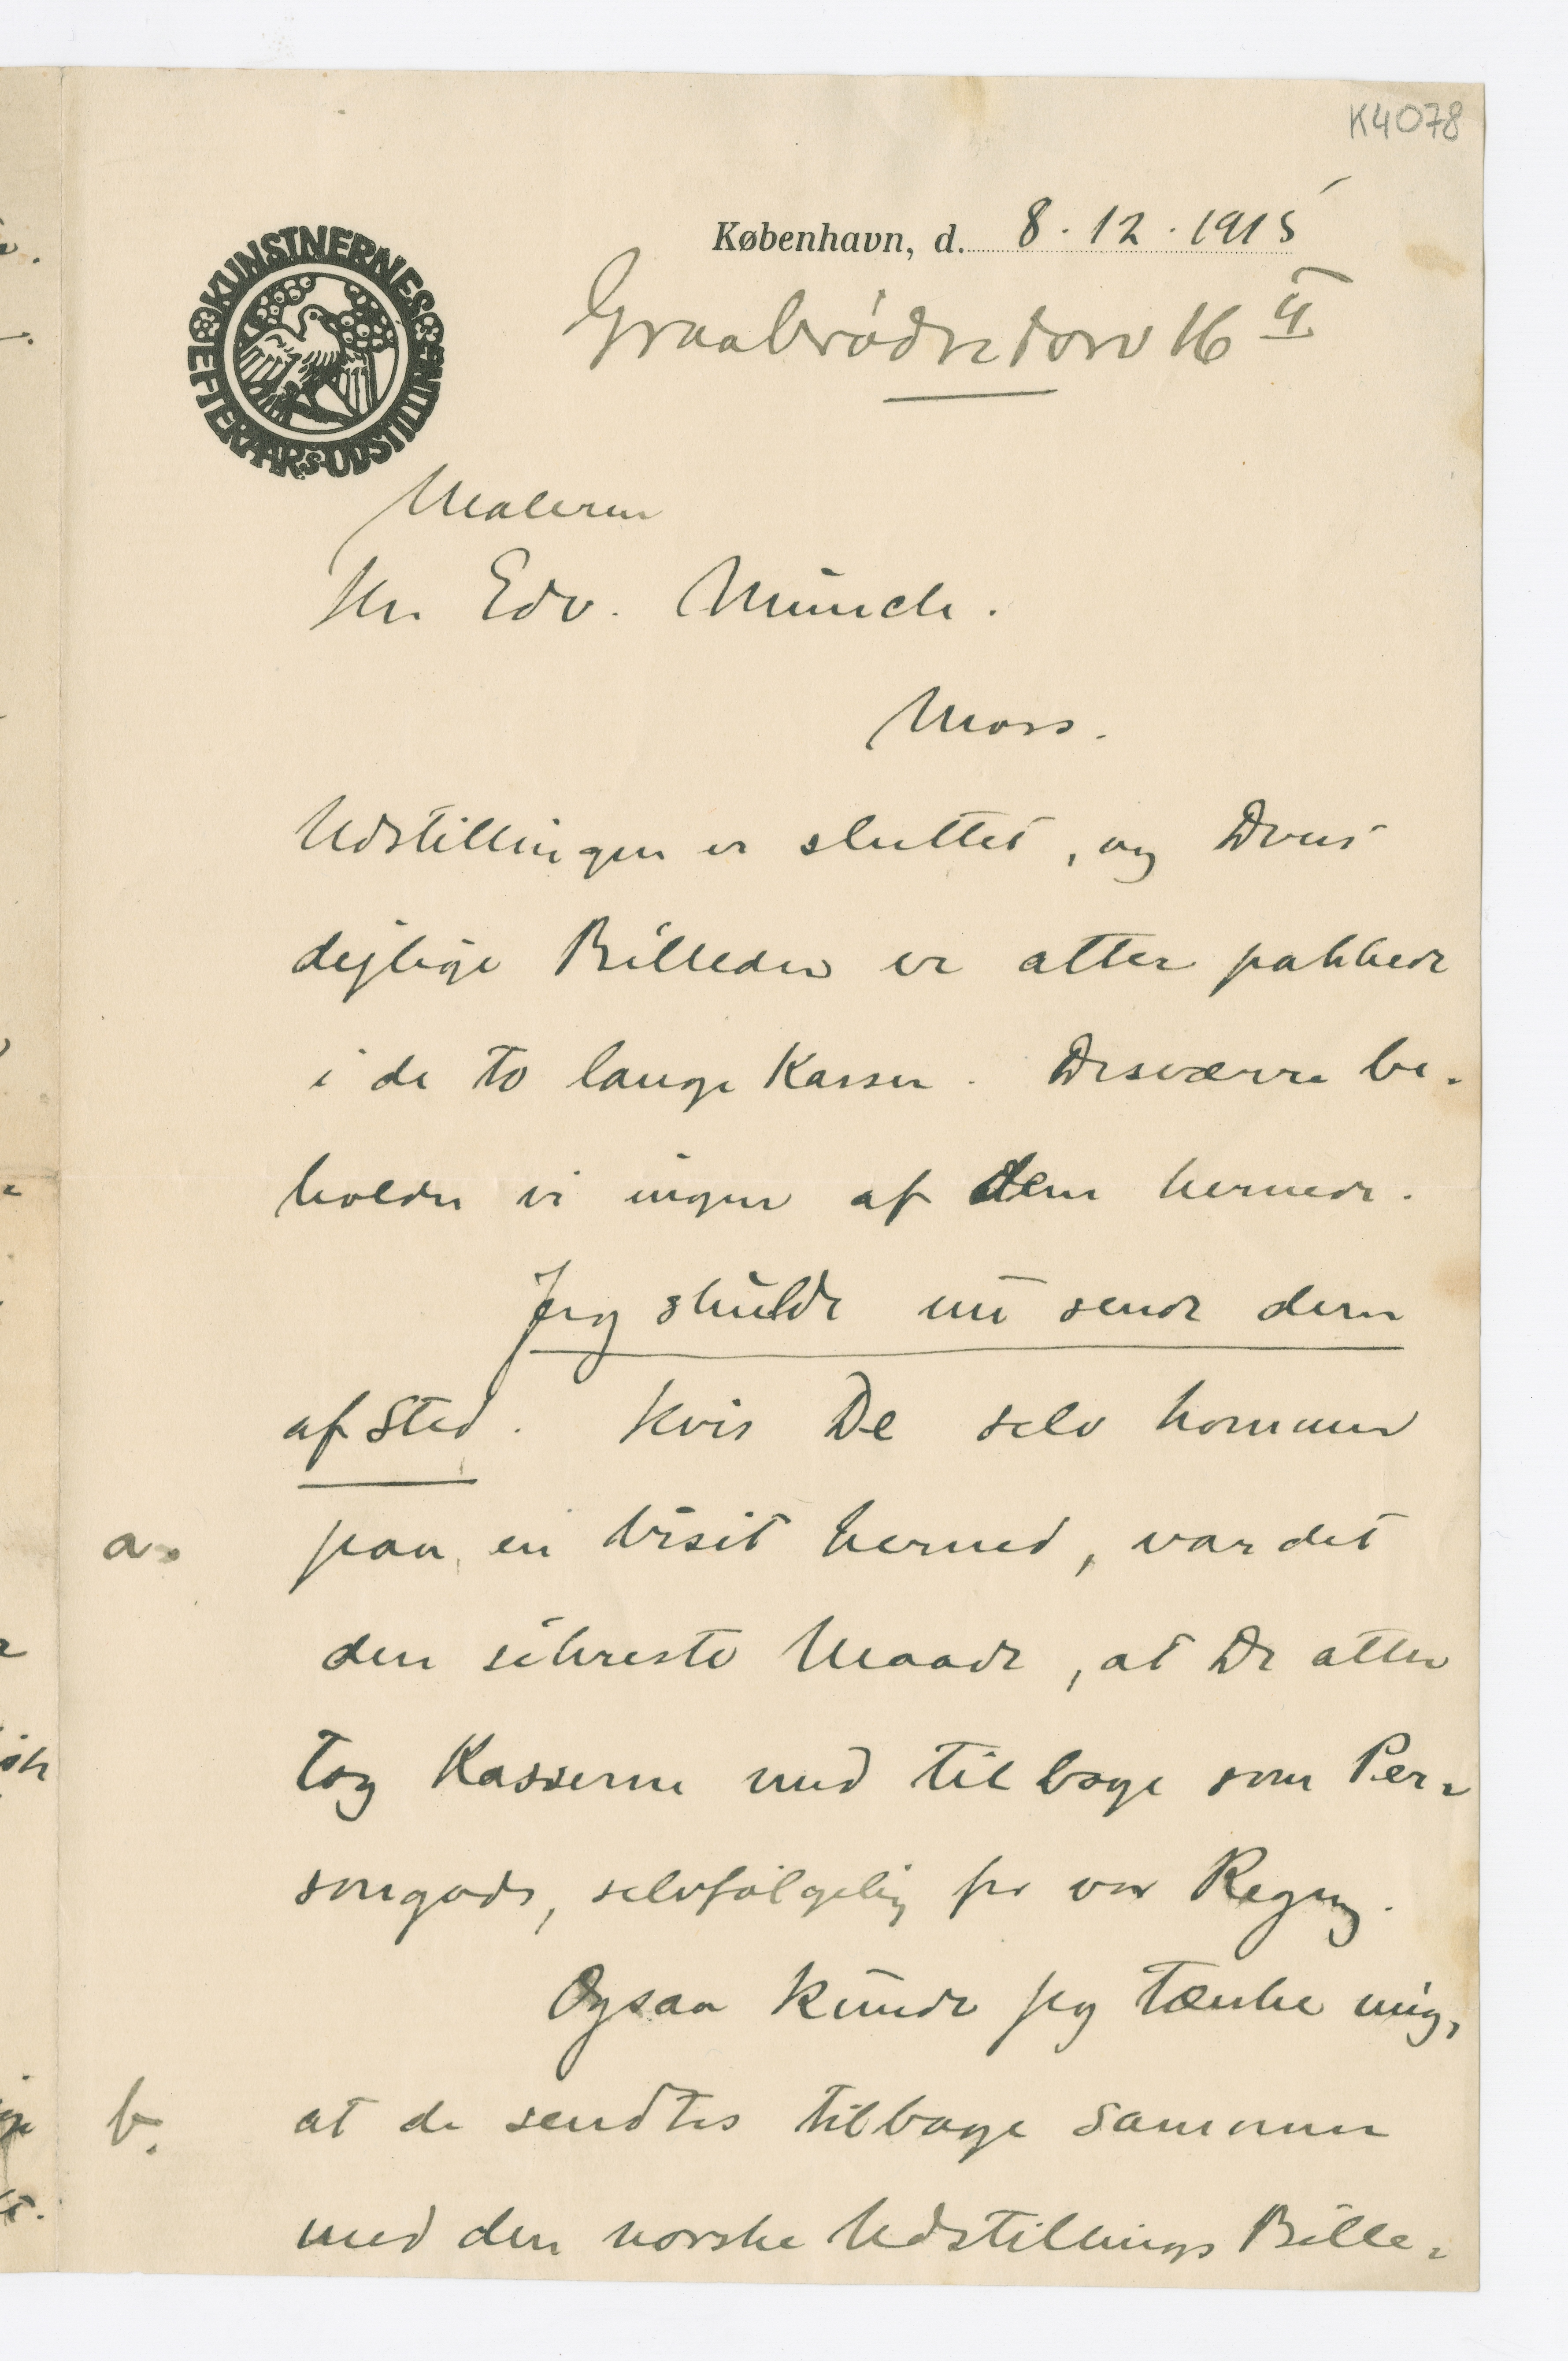 K4078
København, d. 8.12.1915
Graabrødretorv 16 II
KUNSTNERNES EFTERAARSUDSTILLING
Maleren
Hr. Edv. Münch.
Moss.
Udstillingen er sluttet, og Deres
dejlige Billeder er atter pakkede
i de to lange Kasser. Desværre be-
holder vi ingen af dem hernede.
Jeg skulde nu sende dem
af Sted. Hvis De selv kommer
a. paa en Visit herned, var det
den sikreste Maade, at De atter
tog Kasserne med tilbage som Per-
songods, selvfølgelig for vor Regng.
Ogsaa kunde jeg tænke mig,
b. at de sendtes tilbage sammen
med den norske Udstillings Bille-